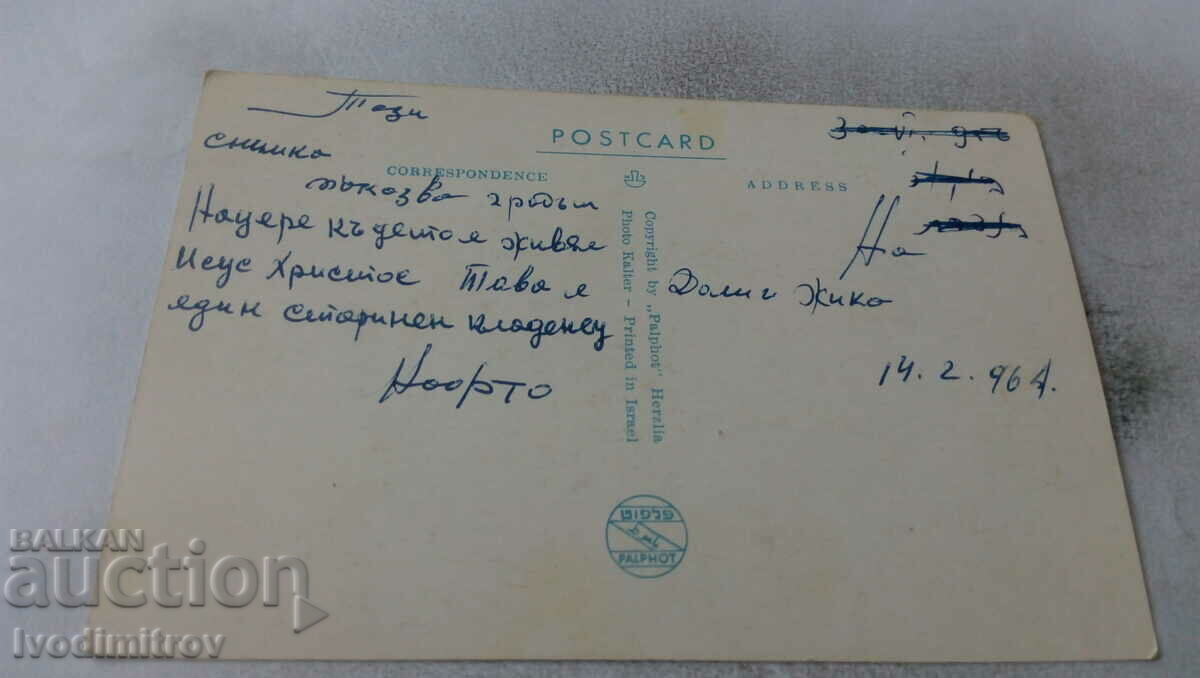 Този
снимка
пъкозва гродъм
Нацере където я живял
Исус Христос Това я
един старинен кладенец
POSTCARD
CORRESPONDENCE
ADDRESS
На
Доли и Жико
14. 2. 964.
Copyright by „Palphot" Herzlia
Photo Kalter - Printed in Israel
פלפוט
PALPHOT
BALKAN
auction
Ivodimitrov